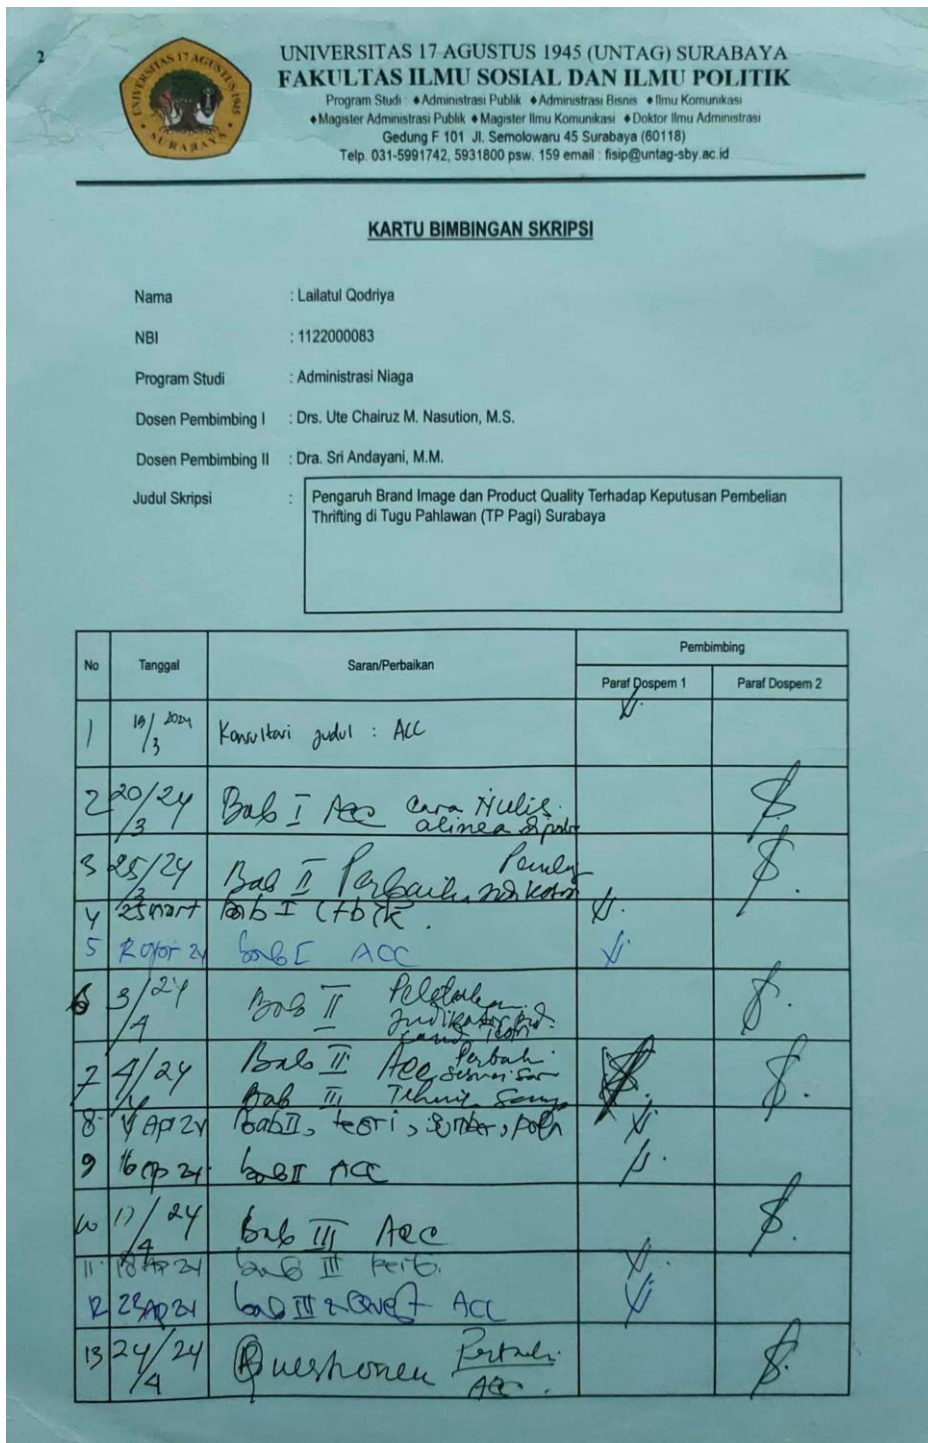 2
UNIVERSITAS 17 AGUSTUS 1945 (UNTAG) SURABAYA
FAKULTAS ILMU SOSIAL DAN ILMU POLITIK
Program Studi : ♦Administrasi Publik ♦Administrasi Bisnis ♦Ilmu Komunikasi
♦Magister Administrasi Publik ♦Magister Ilmu Komunikasi ♦Doktor Ilmu Administrasi
Gedung F 101 Jl. Semolowaru 45 Surabaya (60118)
Telp. 031-5991742, 5931800 psw. 159 email : fisip@untag-sby.ac.id
UNIVERSITAS 17 AGUSTUS 1945
SURABAYA
KARTU BIMBINGAN SKRIPSI
Nama : Lailatul Qodriya
NBI : 1122000083
Program Studi : Administrasi Niaga
Dosen Pembimbing I : Drs. Ute Chairuz M. Nasution, M.S.
Dosen Pembimbing II : Dra. Sri Andayani, M.M.
Judul Skripsi : Pengaruh Brand Image dan Product Quality Terhadap Keputusan Pembelian
Thrifting di Tugu Pahlawan (TP Pagi) Surabaya
No Tanggal Saran/Perbaikan Pembimbing
Paraf Dospem 1 Paraf Dospem 2
1 19/3 2024 Konsultasi judul : ACC
2 20/3/24 Bab I ACC cara Nulis
alinea
3 25/3/24 Bab II
4 25 mart bab I
5 24 bab I ACC
6 3/4/24 Bab II
7 4/4/24 Bab II ACC
Bab III
8 Ap 24 bab II, teori, sumber,
9 16 Ap 24 bab II ACC
10 17/4/24 Bab III ACC
11 18 Ap 24 bab III
12 23 Ap 24 bab III & Quest ACC
13 24/4/24 Questionen
ACC.